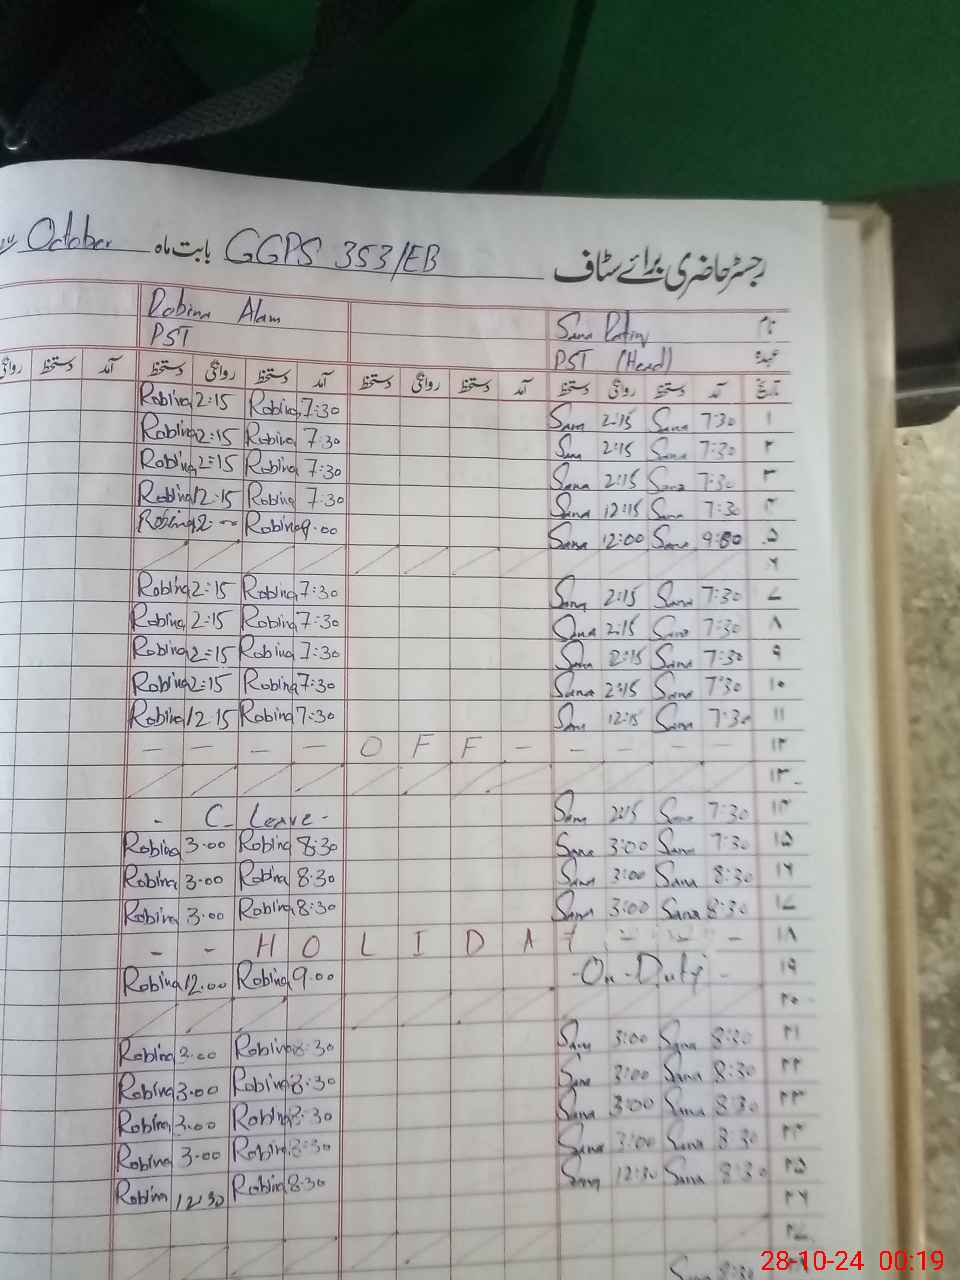 October بابت ماہ GGPS 353/EB رجسٹر حاضری برائے سٹاف
Robina Alam Sana نام
PST PST (Head) عہدہ
روانگی دستخط آمد دستخط روانگی دستخط آمد دستخط روانگی دستخط آمد دستخط روانگی دستخط آمد تاریخ
Robina 2:15 Robina 7:30 Sana 2:15 Sana 7:30 ۱
Robina 2:15 Robina 7:30 Sana 2:15 Sana 7:30 ۲
Robina 2:15 Robina 7:30 Sana 2:15 Sana 7:30 ۳
Robina 12:15 Robina 7:30 Sana 12:15 Sana 7:30 ۴
Robina Robina 9.00 Sana 12:00 Sana 9:00 ۵
۶
Robina 2:15 Robina 7:30 Sana 2:15 Sana 7:30 ۷
Robina 2:15 Robina 7:30 Sana 2:15 Sana 7:30 ۸
Robina 2:15 Robina 7:30 Sana 2:15 Sana 7:30 ۹
Robina 2:15 Robina 7:30 Sana 2:15 Sana 7:30 ۱۰
Robina 12.15 Robina 7:30 Sana 12:15 Sana 7:30 ۱۱
- - - - O F F - - - - - ۱۲
۱۳
- C. Leave - Sana 2:15 Sana 7:30 ۱۴
Robina 3.00 Robina 8:30 Sana 3:00 Sana 7:30 ۱۵
Robina 3.00 Robina 8:30 Sana 3:00 Sana 8:30 ۱۶
Robina 3.00 Robina 8:30 Sana 3:00 Sana 8:30 ۱۷
- - H O L I D A Y - - - ۱۸
Robina 12.00 Robina 9.00 - On - Duty - ۱۹
۲۰
Robina 3.00 Robina 8:30 Sana 3:00 Sana 8:30 ۲۱
Robina 3.00 Robina 8:30 Sana 3:00 Sana 8:30 ۲۲
Robina 3.00 Robina 8:30 Sana 3:00 Sana 8:30 ۲۳
Robina 3.00 Robina 8:30 Sana 3:00 Sana 8:30 ۲۴
Robina 12:30 Robina 8:30 Sana 12:30 Sana 8:30 ۲۵
۲۶
۲۷
Sana 8:30
28-10-24 00:19